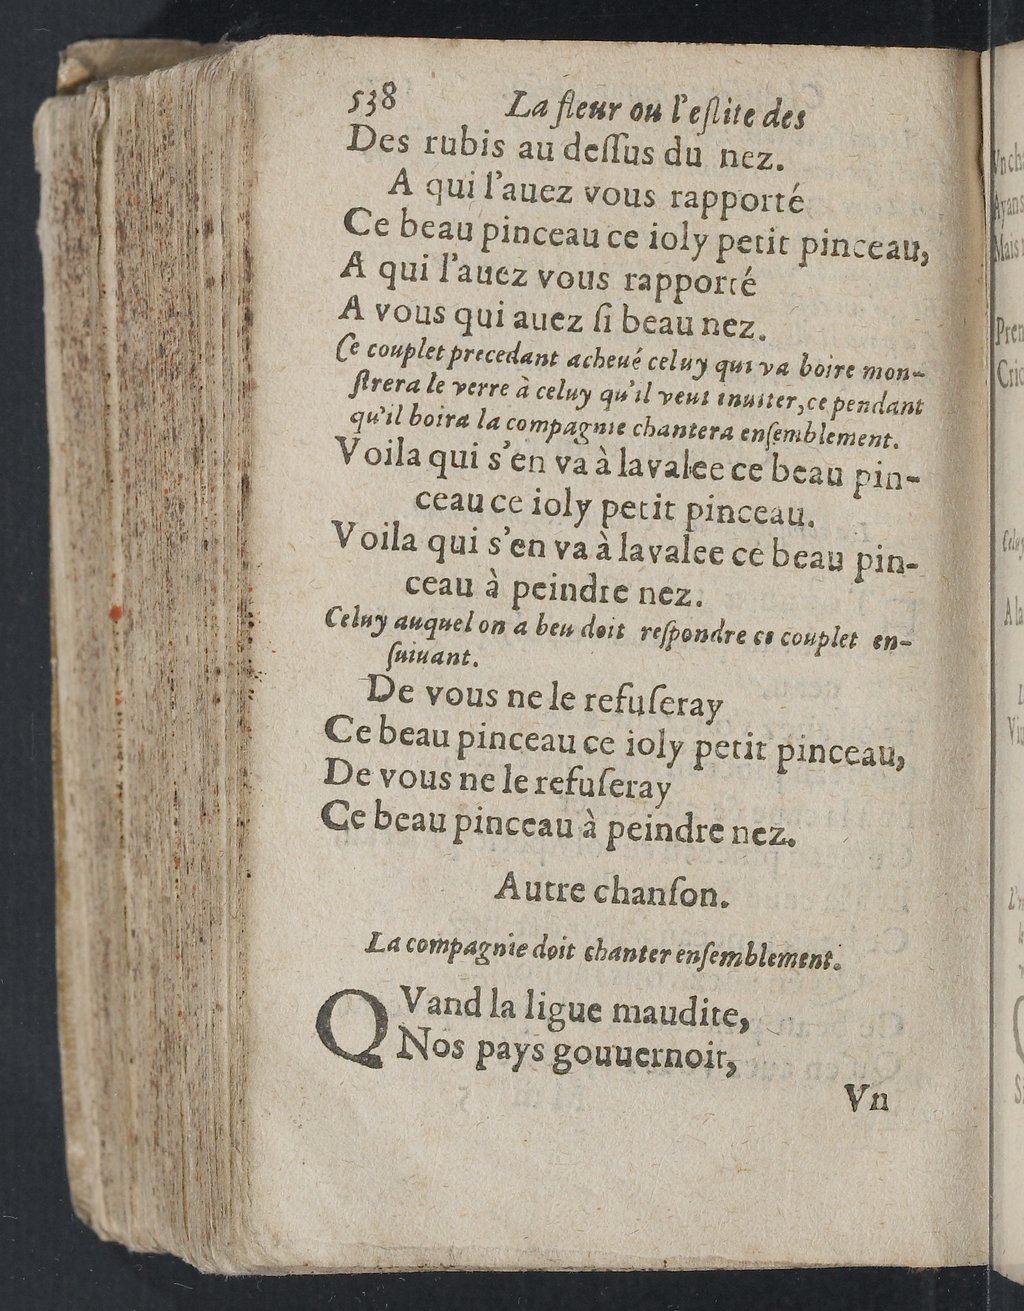 538 La fleur ou l'eſlite des
Des rubis au deſſus du nez.
A qui l'auez vous rapporté
Ce beau pinceau ce ioly petit pinceau,
A qui l'auez vous rapporté
A vous qui auez ſi beau nez.
Ce couplet precedant acheué celuy qui va boire mon-
ſtrera le verre à celuy qu'il veut inuiter, ce pendant
qu'il boira la compagnie chantera enſemblement.
Voila qui s'en va à lavalee ce beau pin-
ceau ce ioly petit pinceau.
Voila qui s'en va à lavalee ce beau pin-
ceau à peindre nez.
Celuy auquel on a beu doit reſpondre ce couplet en-
ſuiuant.
De vous ne le refuſeray
Ce beau pinceau ce ioly petit pinceau,
De vous ne le refuſeray
Ce beau pinceau à peindre nez.
Autre chanſon.
La compagnie doit chanter enſemblement.
QVand la ligue maudite,
Nos pays gouuernoit,
Vn